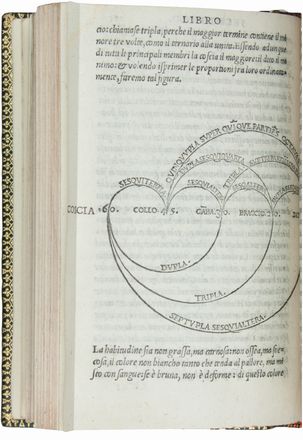 LIBRO
cio: chiamase tripla, perche il maggior termine contiene il mi
nore tre volte, como il ternario alla unità. Essendo adunque
di tutti le principali membri la coscia il maggiore: il dito il mi
nimo: & volendo isprimer le proportioni fra loro ordinata
mente, faremo tal figura.
SESQVITERTIA
DVPLA SESQVIQVARTA
TRIPLA
SESQVIALTERA
SESQVIALTERA
COSCIA 60. COLLO 45. BRACCIO
DVPLA.
TRIPLA.
SEPTVPLA SESQVIALTERA.
La habitudine sia non grassa, ma carnosa: non ossea, ma suc
cosa, il colore non bianco tanto che tenda al pallore, ma mi
sto con sangue: se è bruna, non è deforme: di questo colore